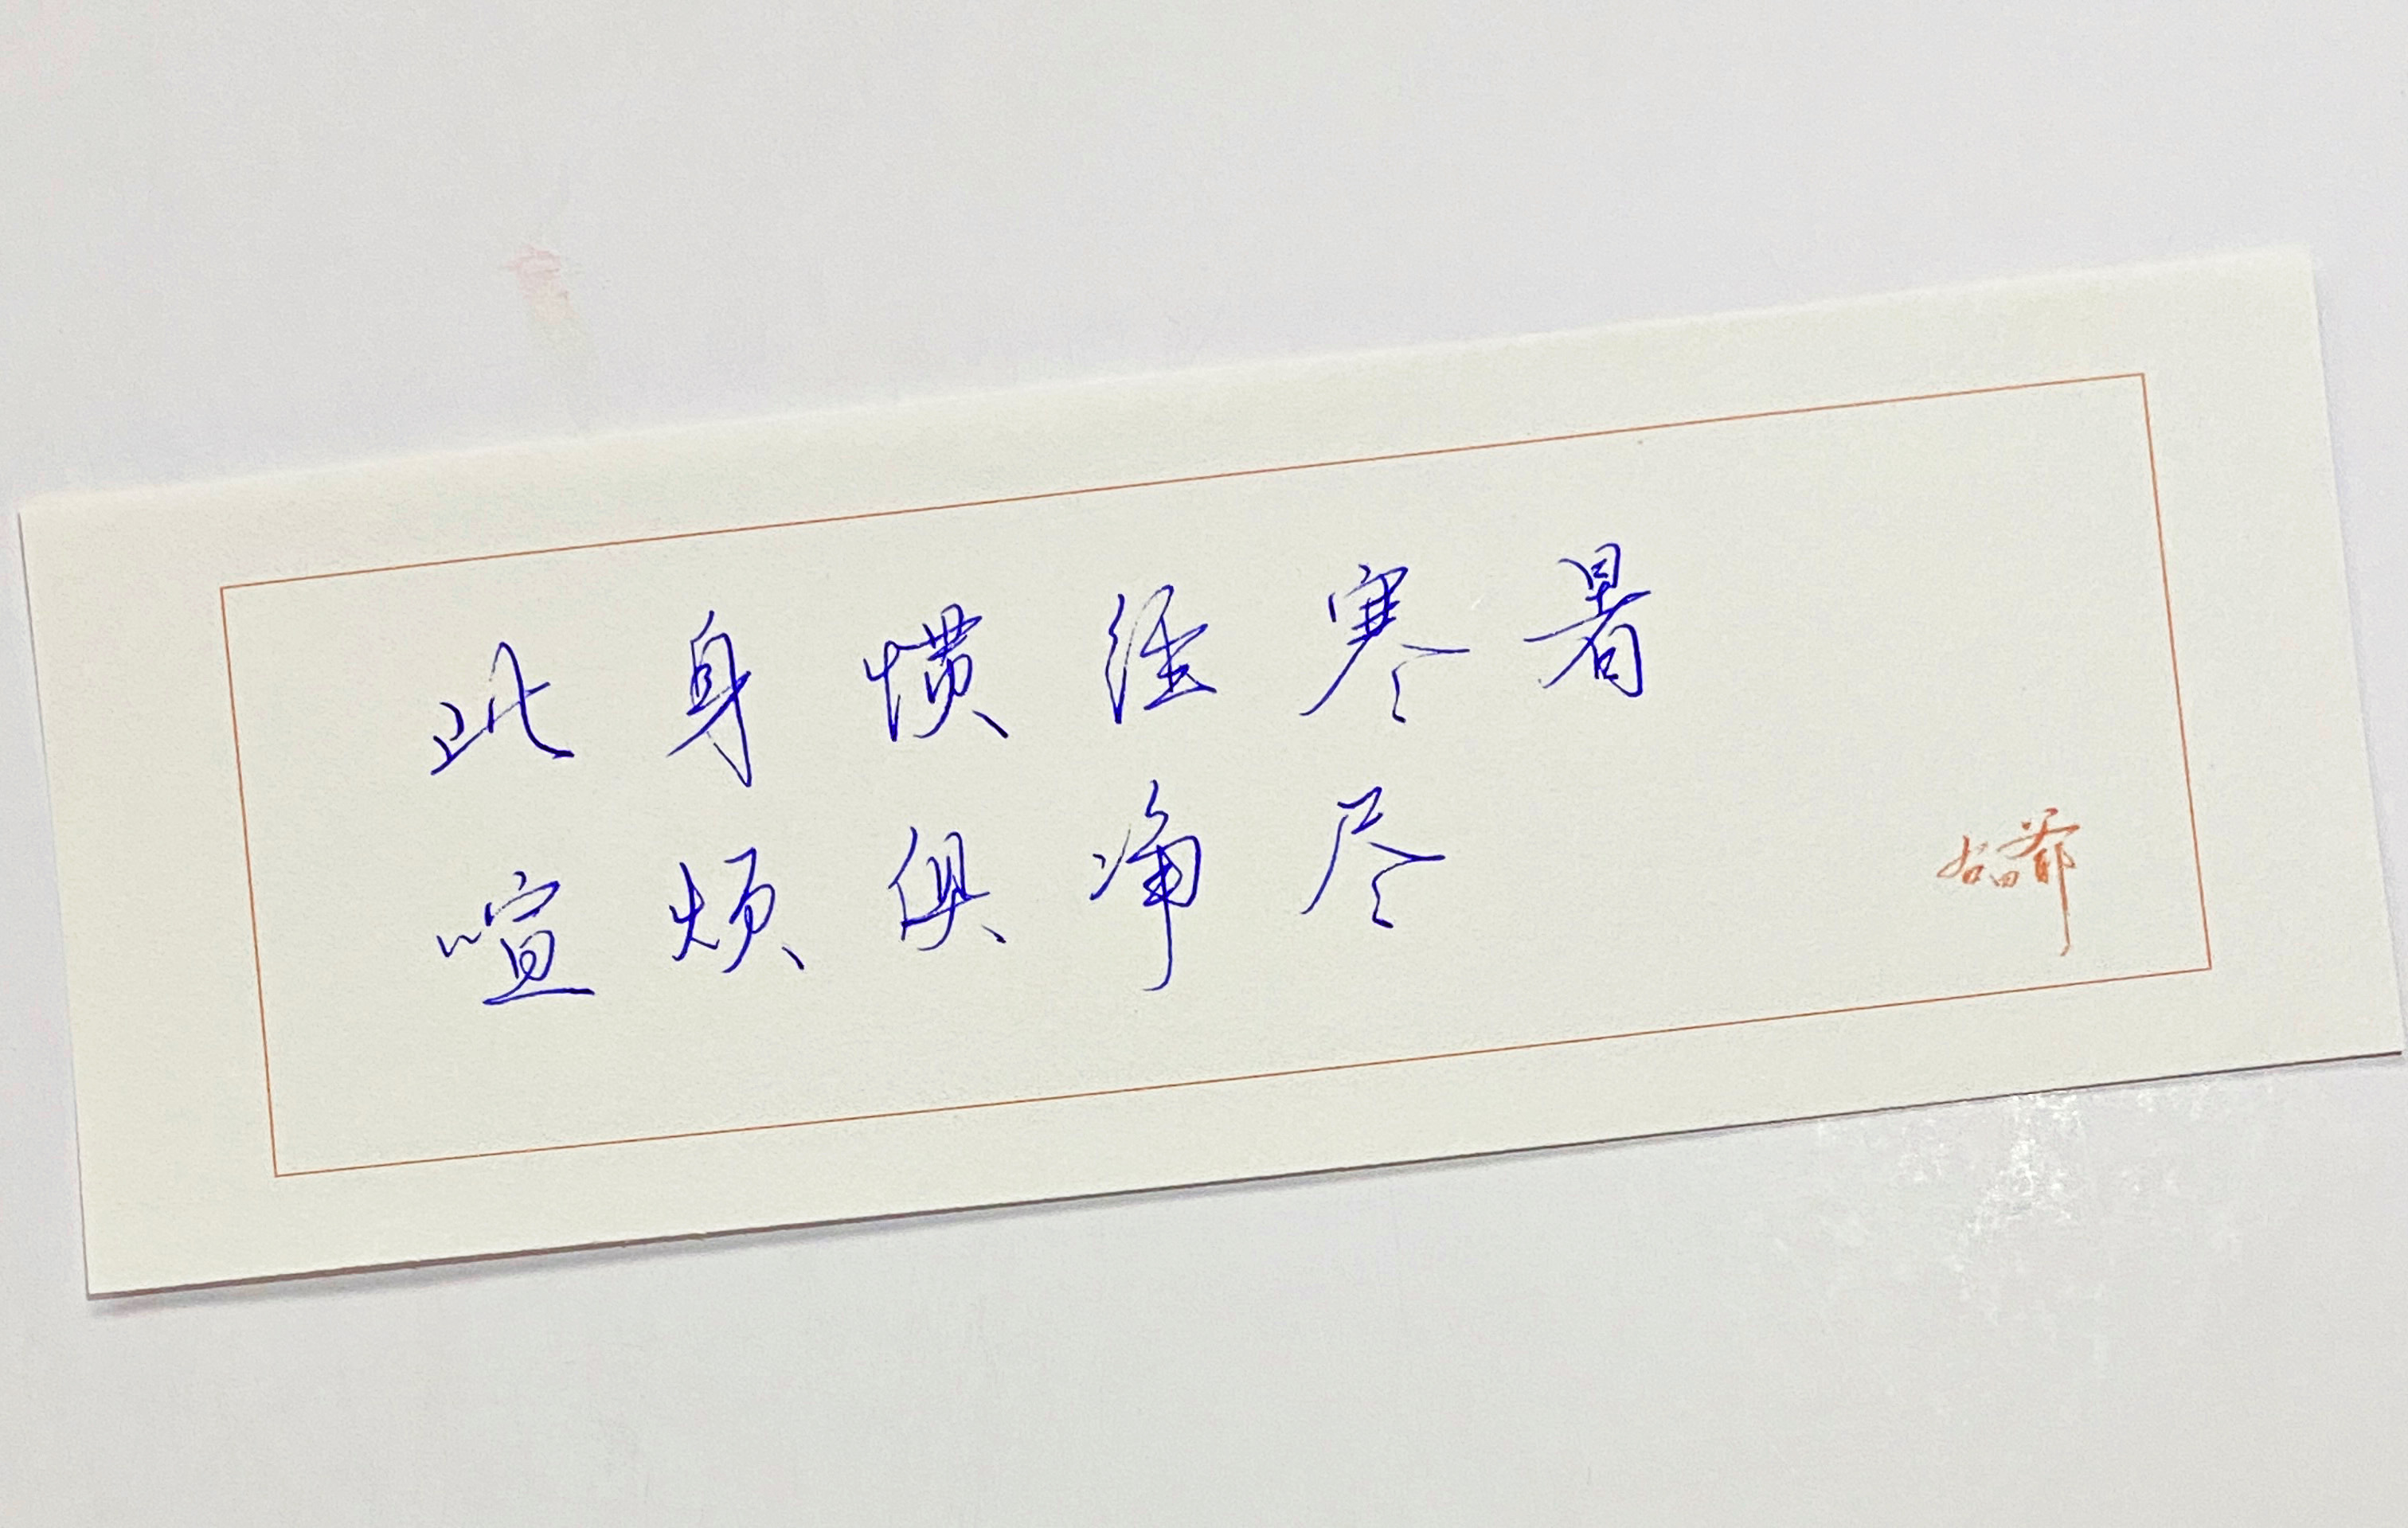 此身惯经寒暑
喧烦俱净尽